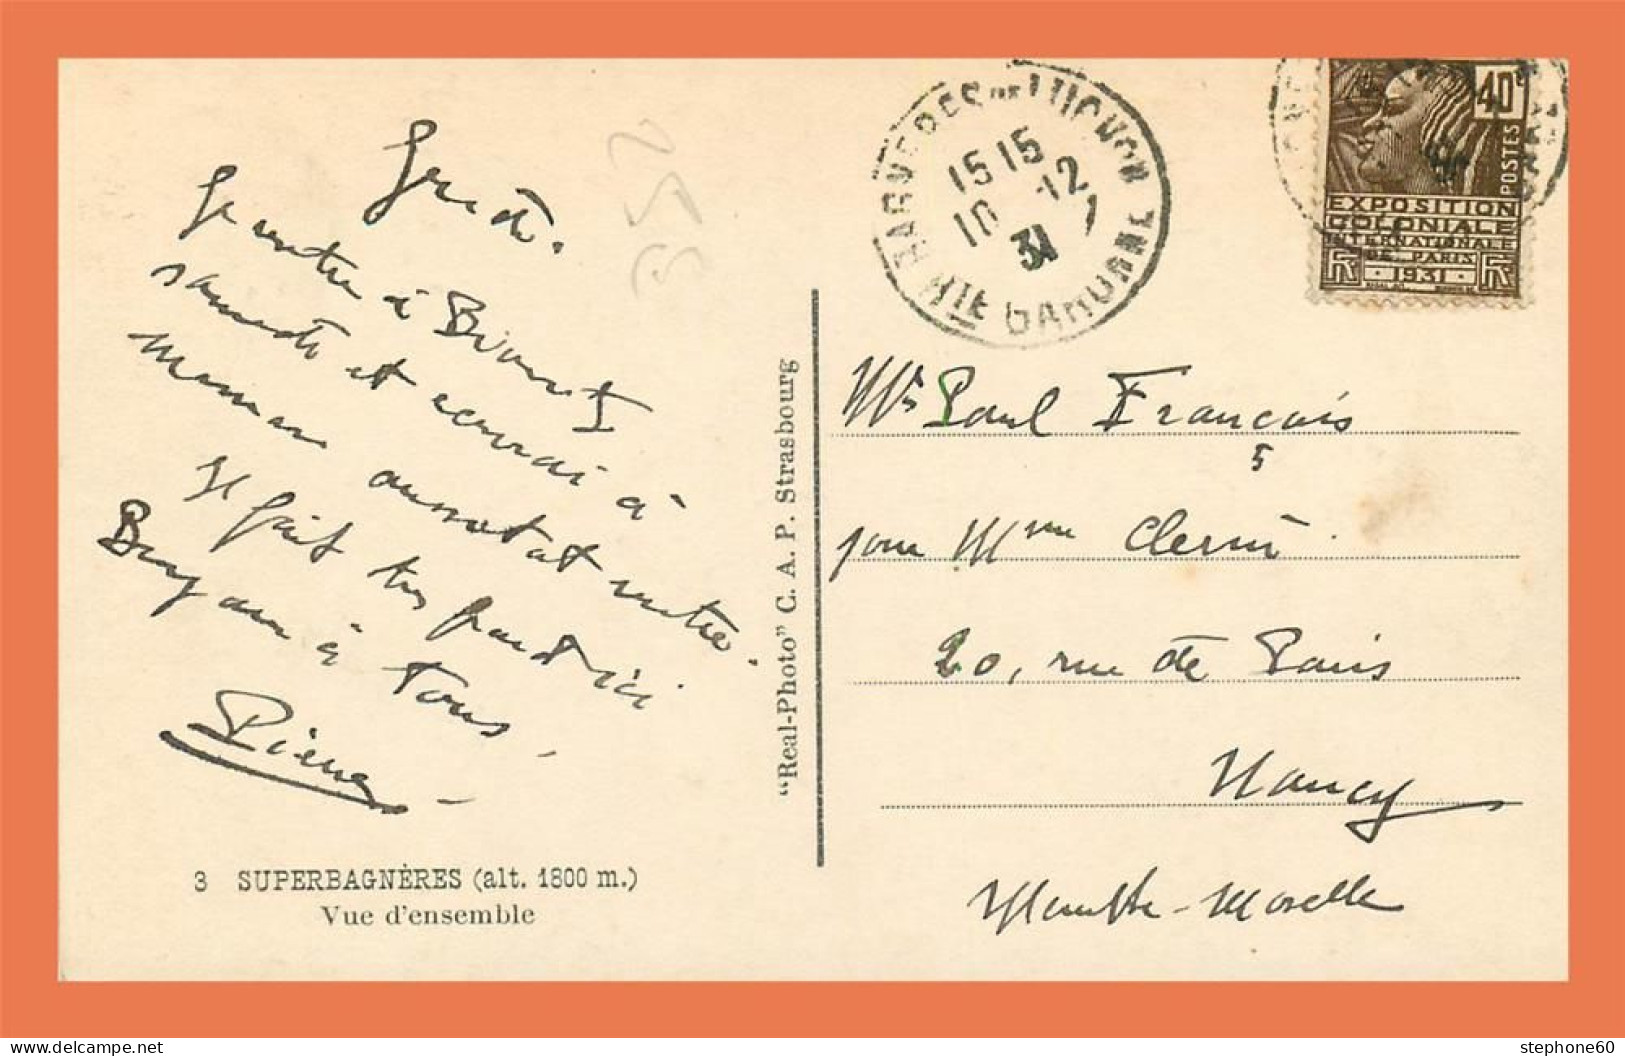 Jeudi.
Je rentre à
samedi et écrirai à
maman aussitôt rentré.
Il fait très froid ici
à tous.
Pierre
352
3 SUPERBAGNÈRES (alt. 1800 m.)
Vue d'ensemble
"Real-Photo" C. A. P. Strasbourg
BAGNERES DE LUCHON
15 15
10 - 12
31
HTE GARONNE
40c
POSTES
EXPOSITION
COLONIALE
INTERNATIONALE
DE PARIS
RF 1931 RF
Mr Paul François
pour Mme
20, rue de Paris
Nancy
Meurthe-Moselle
stephone60